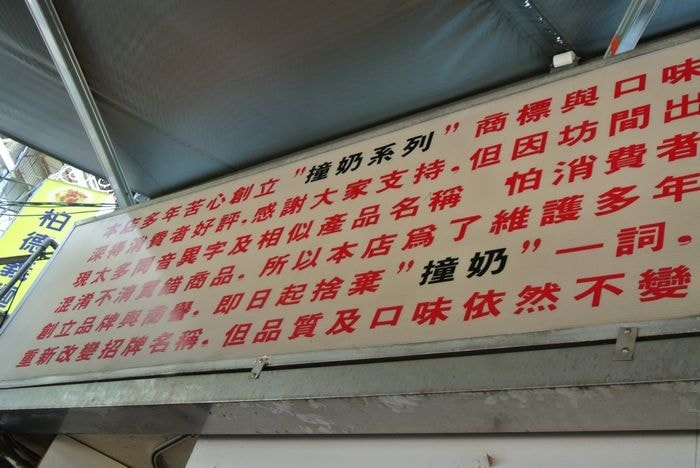 本店多年苦心創立"撞奶系列"商標與口味
深得消費者好評,感謝大家支持。但因坊間出
現太多同音異字及相似產品名稱 怕消費者
混淆不清買錯商品。所以本店爲了維護多年
創立品牌與商譽。即日起捨棄"撞奶"一詞。
重新改變招牌名稱。但品質及口味依然不變
柏
德